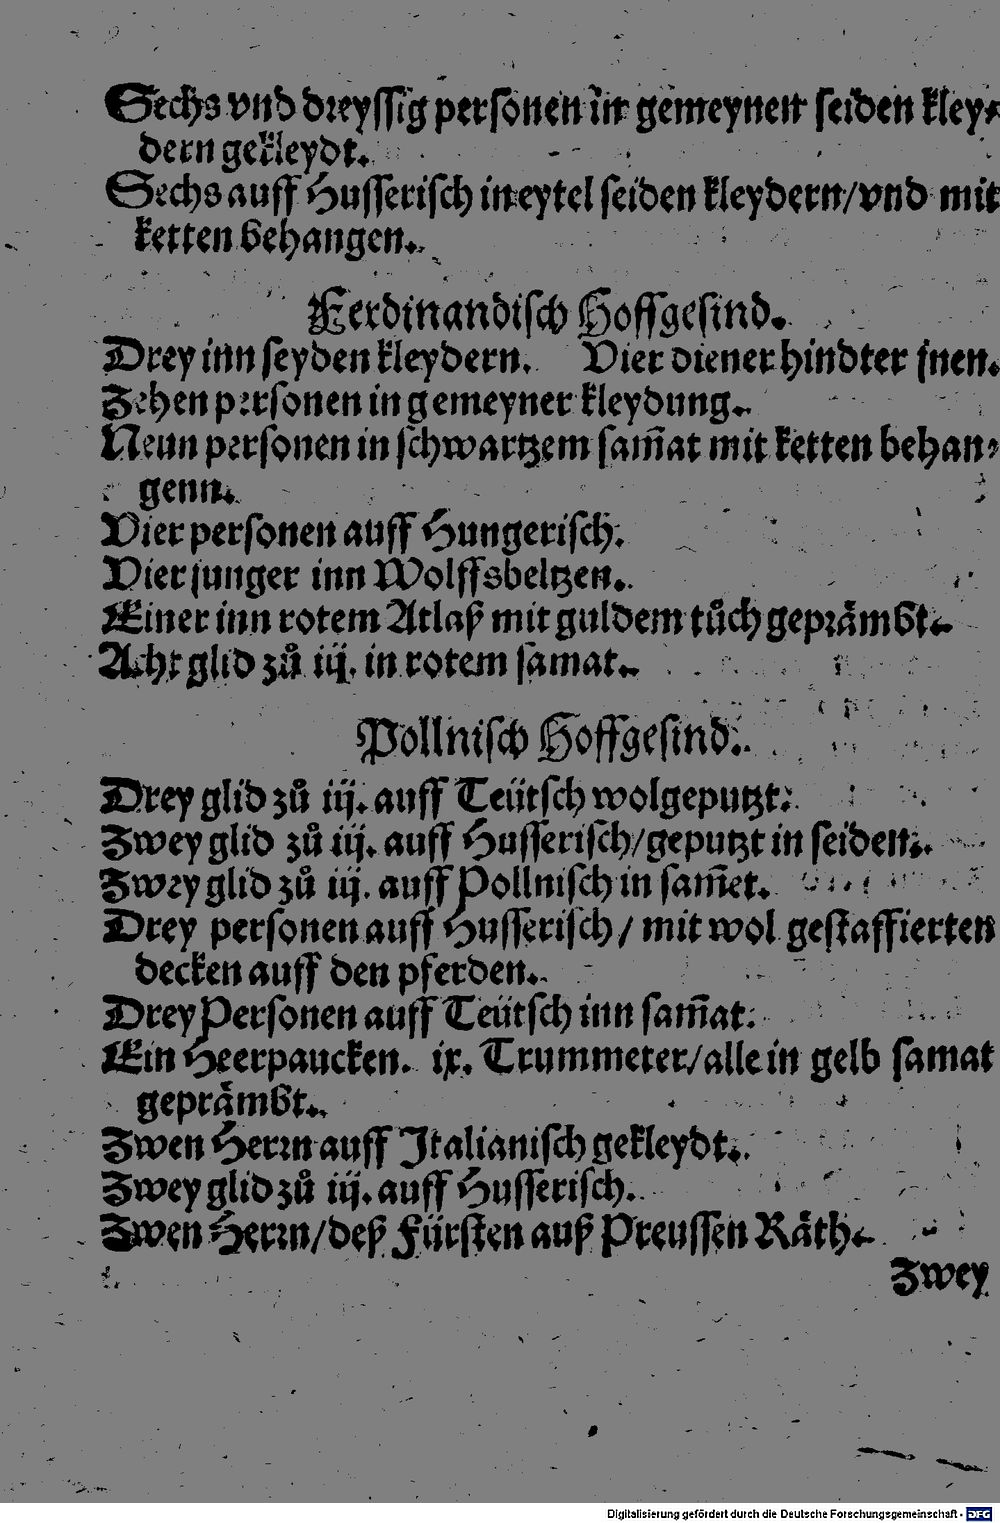 Sechs vnd dreyssig personen in gemeynen seiden kley⸗
dern gekleydt.
Sechs auff Husserisch in eytel seiden kleydern/vnd mit
ketten behangen.
Ferdinandisch Hoffgesind.
Drey inn seyden kleydern. Vier diener hindter jnen.
Zehen personen in gemeyner kleydung.
Neun personen in schwartzem sam̃at mit ketten behan⸗
genn.
Vier personen auff Hungerisch.
Vier junger inn Wolffsbeltzen.
Einer inn rotem Atlaß mit guldem tůch geprämbt.
Acht glid zů iij. in rotem samat.
Pollnisch Hoffgesind.
Drey glid zů iij. auff Teütsch wolgeputzt.
Zwey glid zů iij. auff Husserisch/geputzt in seiden.
Zwey glid zů iij. auff Pollnisch in sam̃et.
Drey personen auff Husserisch/ mit wol gestaffierten
decken auff den pferden.
Drey Personen auff Teütsch inn sam̃at.
Ein Heerpaucken. ix. Trummeter/alle in gelb samat
geprämbt.
Zwen Herrn auff Italianisch gekleydt.
Zwey glid zů iij. auff Husserisch.
Zwen Herrn/deß Fürsten auß Preussen Räth.
Zwey
Digitalisierung gefördert durch die Deutsche Forschungsgemeinschaft - DFG